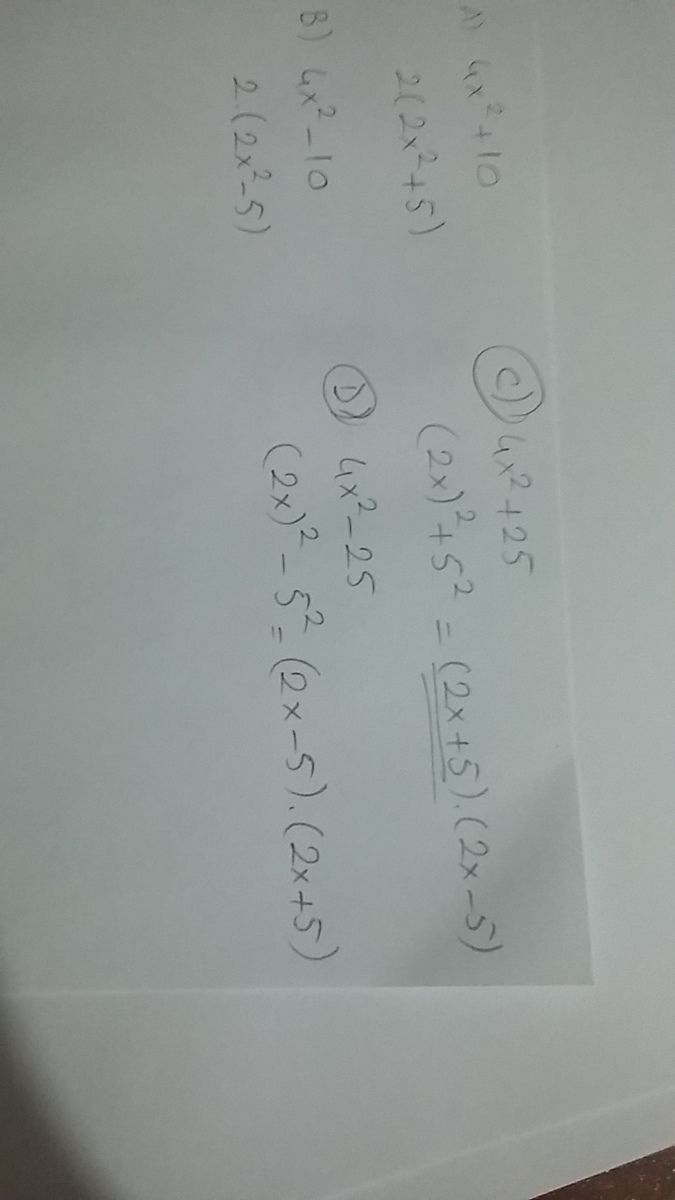 A) 4x²+10
2(2x²+5)
B) 4x²-10
2.(2x²-5)
C) 4x²+25
(2x)²+5² = (2x+5).(2x-5)
D) 4x²-25
(2x)² - 5² = (2x-5).(2x+5)